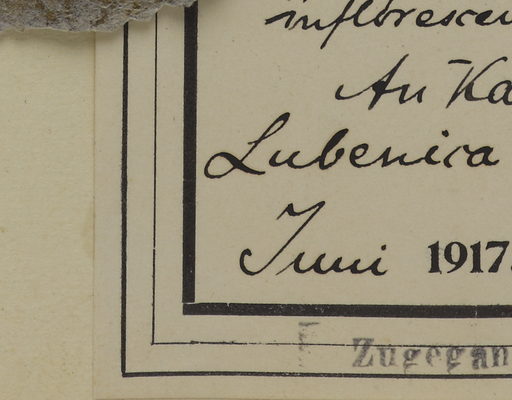 inflorescen
An Ka
Lubenica
Juni 1917.
Zugegan